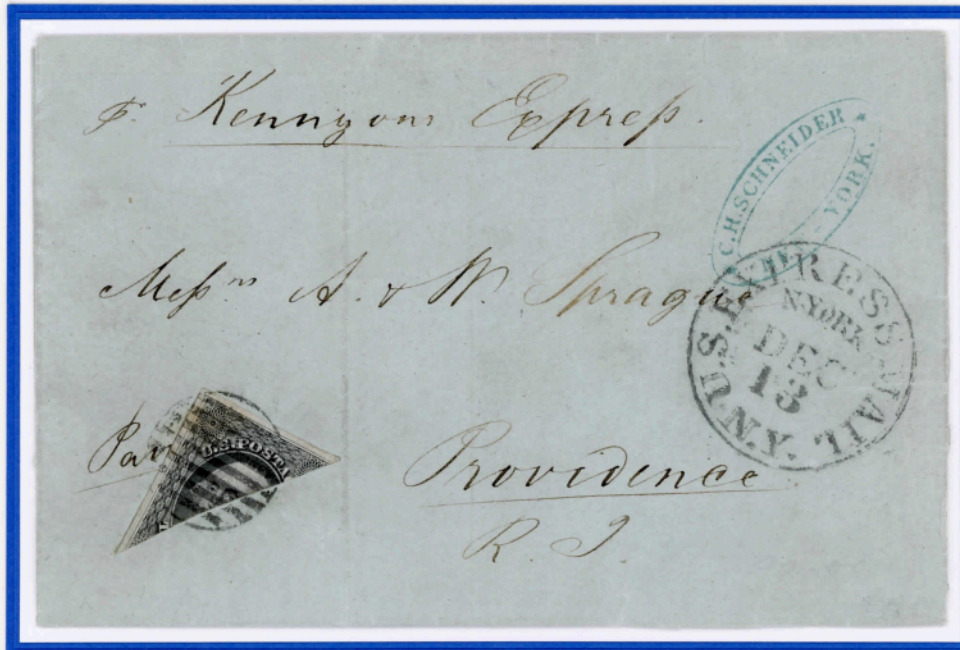 p. Kennyons Express.
C.H. SCHNEIDER
NEW-YORK.
Messrs A. & W. Sprague
U.S. EXPRESS MAIL N.Y.
N.YORK
DEC
13
Paid
U.S. POSTA
Providence
R. I.